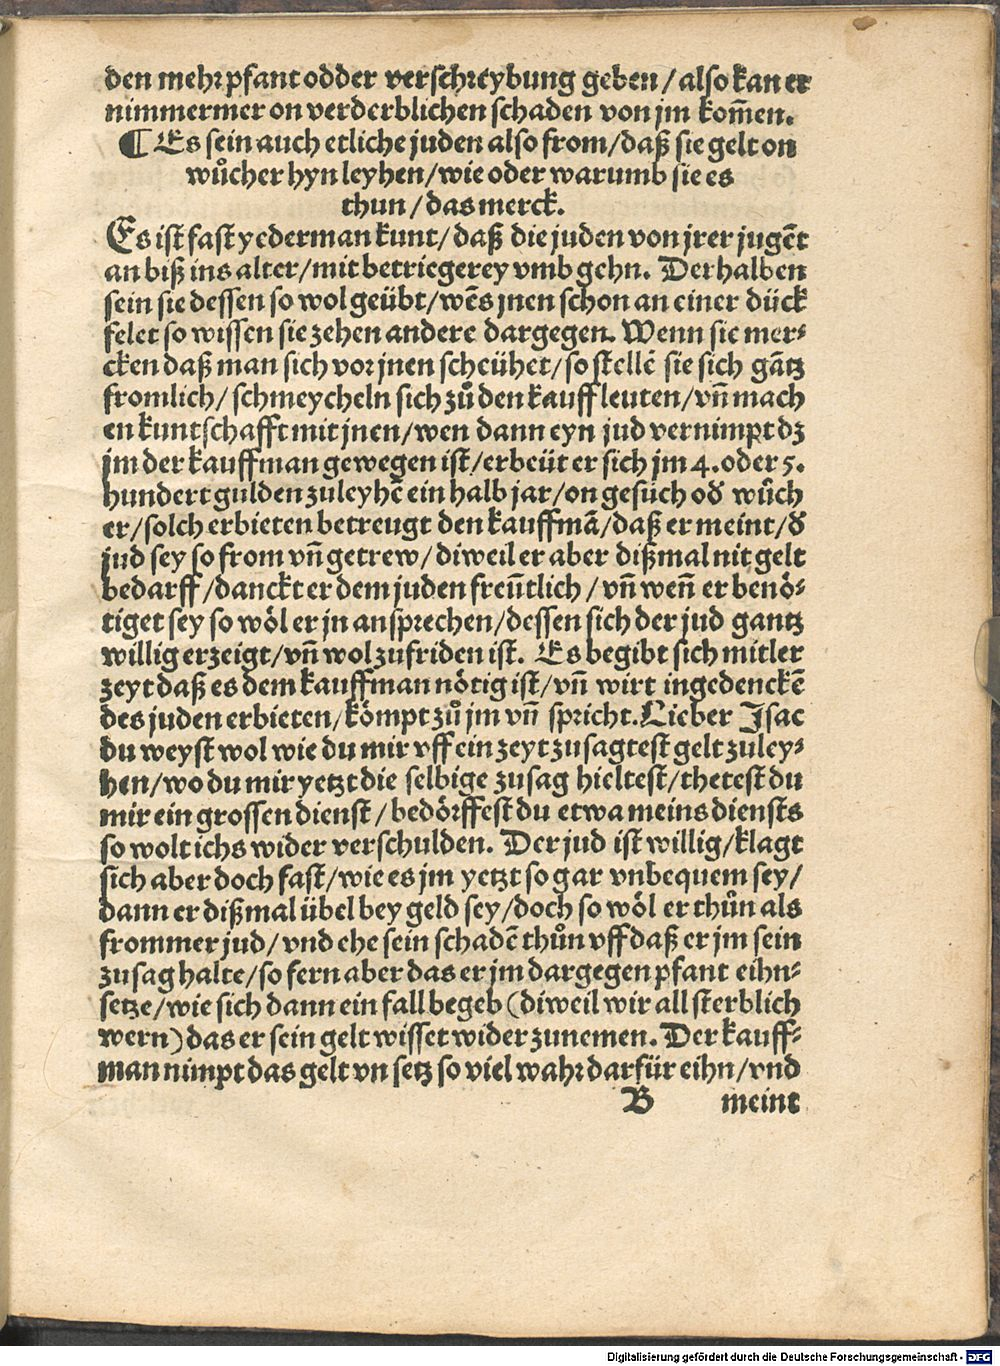 den mehr pfant odder verschreybung geben / also kan er
nimmermer on verderblichen schaden von jm kom̃en.
¶ Es sein auch etliche juden also from / daß sie gelt on
wůcher hyn leyhen / wie oder warumb sie es
thun / das merck.
Es ist fast yederman kunt / daß die juden von jrer jugẽt
an biß ins alter / mit betriegerey vmb gehn. Derhalben
sein sie dessen so wol geübt / wẽs jnen schon an einer dück
felet so wissen sie zehen andere dargegen. Wenn sie mer⸗
cken daß man sich vor jnen scheühet / so stellẽ sie sich gãtz
fromlich / schmeycheln sich zů den kauffleuten / vñ mach
en kuntschafft mit jnen / wen dann eyn jud vernimpt dz
jm der kauffman gewegen ist / erbeüt er sich jm 4. oder 5.
hundert gulden zuleyhẽ ein halb jar / on gesůch oď wůch
er / solch erbieten betreugt den kauffmã / daß er meint / ď
jud sey so from vñ getrew / diweil er aber dißmal nit gelt
bedarff / danckt er dem juden freũtlich / vñ weñ er benö⸗
tiget sey so wöl er jn ansprechen / dessen sich der jud gantz
willig erzeigt / vñ wol zufriden ist. Es begibt sich mitler
zeyt daß es dem kauffman nötig ist / vñ wirt ingedenckẽ
des juden erbieten / kömpt zů jm vñ spricht. Lieber Isac
du weyst wol wie du mir vff ein zeyt zusagtest gelt zuley⸗
hen / wo du mir yetzt die selbige zusag hieltest / thetest du
mir ein grossen dienst / bedörffest du etwa meins diensts
so wolt ichs wider verschulden. Der jud ist willig / klagt
sich aber doch fast / wie es jm yetzt so gar vnbequem sey /
dann er dißmal übel bey geld sey / doch so wöl er thůn als
frommer jud / vnd ehe sein schadẽ thůn vff daß er jm sein
zusag halte / so fern aber das er jm dargegen pfant eihn⸗
setze / wie sich dann ein fall begeb (diweil wir all sterblich
wern) das er sein gelt wisset wider zunemen. Der kauff⸗
man nimpt das gelt vn setz so viel wahr darfür eihn / vnd
B meint
Digitalisierung gefördert durch die Deutsche Forschungsgemeinschaft - DFG